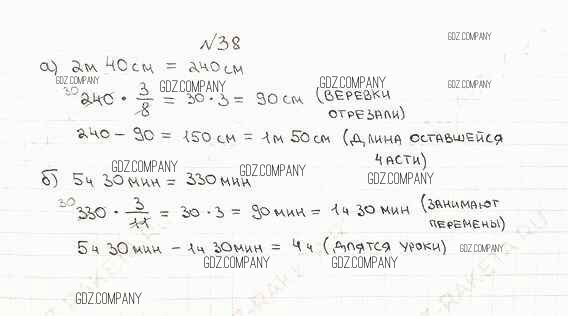 №38
GDZ.COMPANY
а) 2м 40см = 240см
GDZ.COMPANY GDZ.COMPANY GDZ.COMPANY GDZ.COMPANY
30
240 · 3/8 = 30·3 = 90см (ВЕРЕВКИ
ОТРЕЗАЛИ)
240 - 90 = 150см = 1м 50см (ДЛИНА ОСТАВШЕЙСЯ
ЧАСТИ)
GDZ.COMPANY GDZ.COMPANY GDZ.COMPANY
б) 5ч 30мин = 330мин
30
330 · 3/11 = 30·3 = 90мин = 1ч 30мин (ЗАНИМАЮТ
ПЕРЕМЕНЫ)
5ч 30мин - 1ч 30мин = 4ч (ДЛЯТСЯ УРОКИ)
GDZ.COMPANY
GDZ.COMPANY GDZ.COMPANY
GDZ.COMPANY